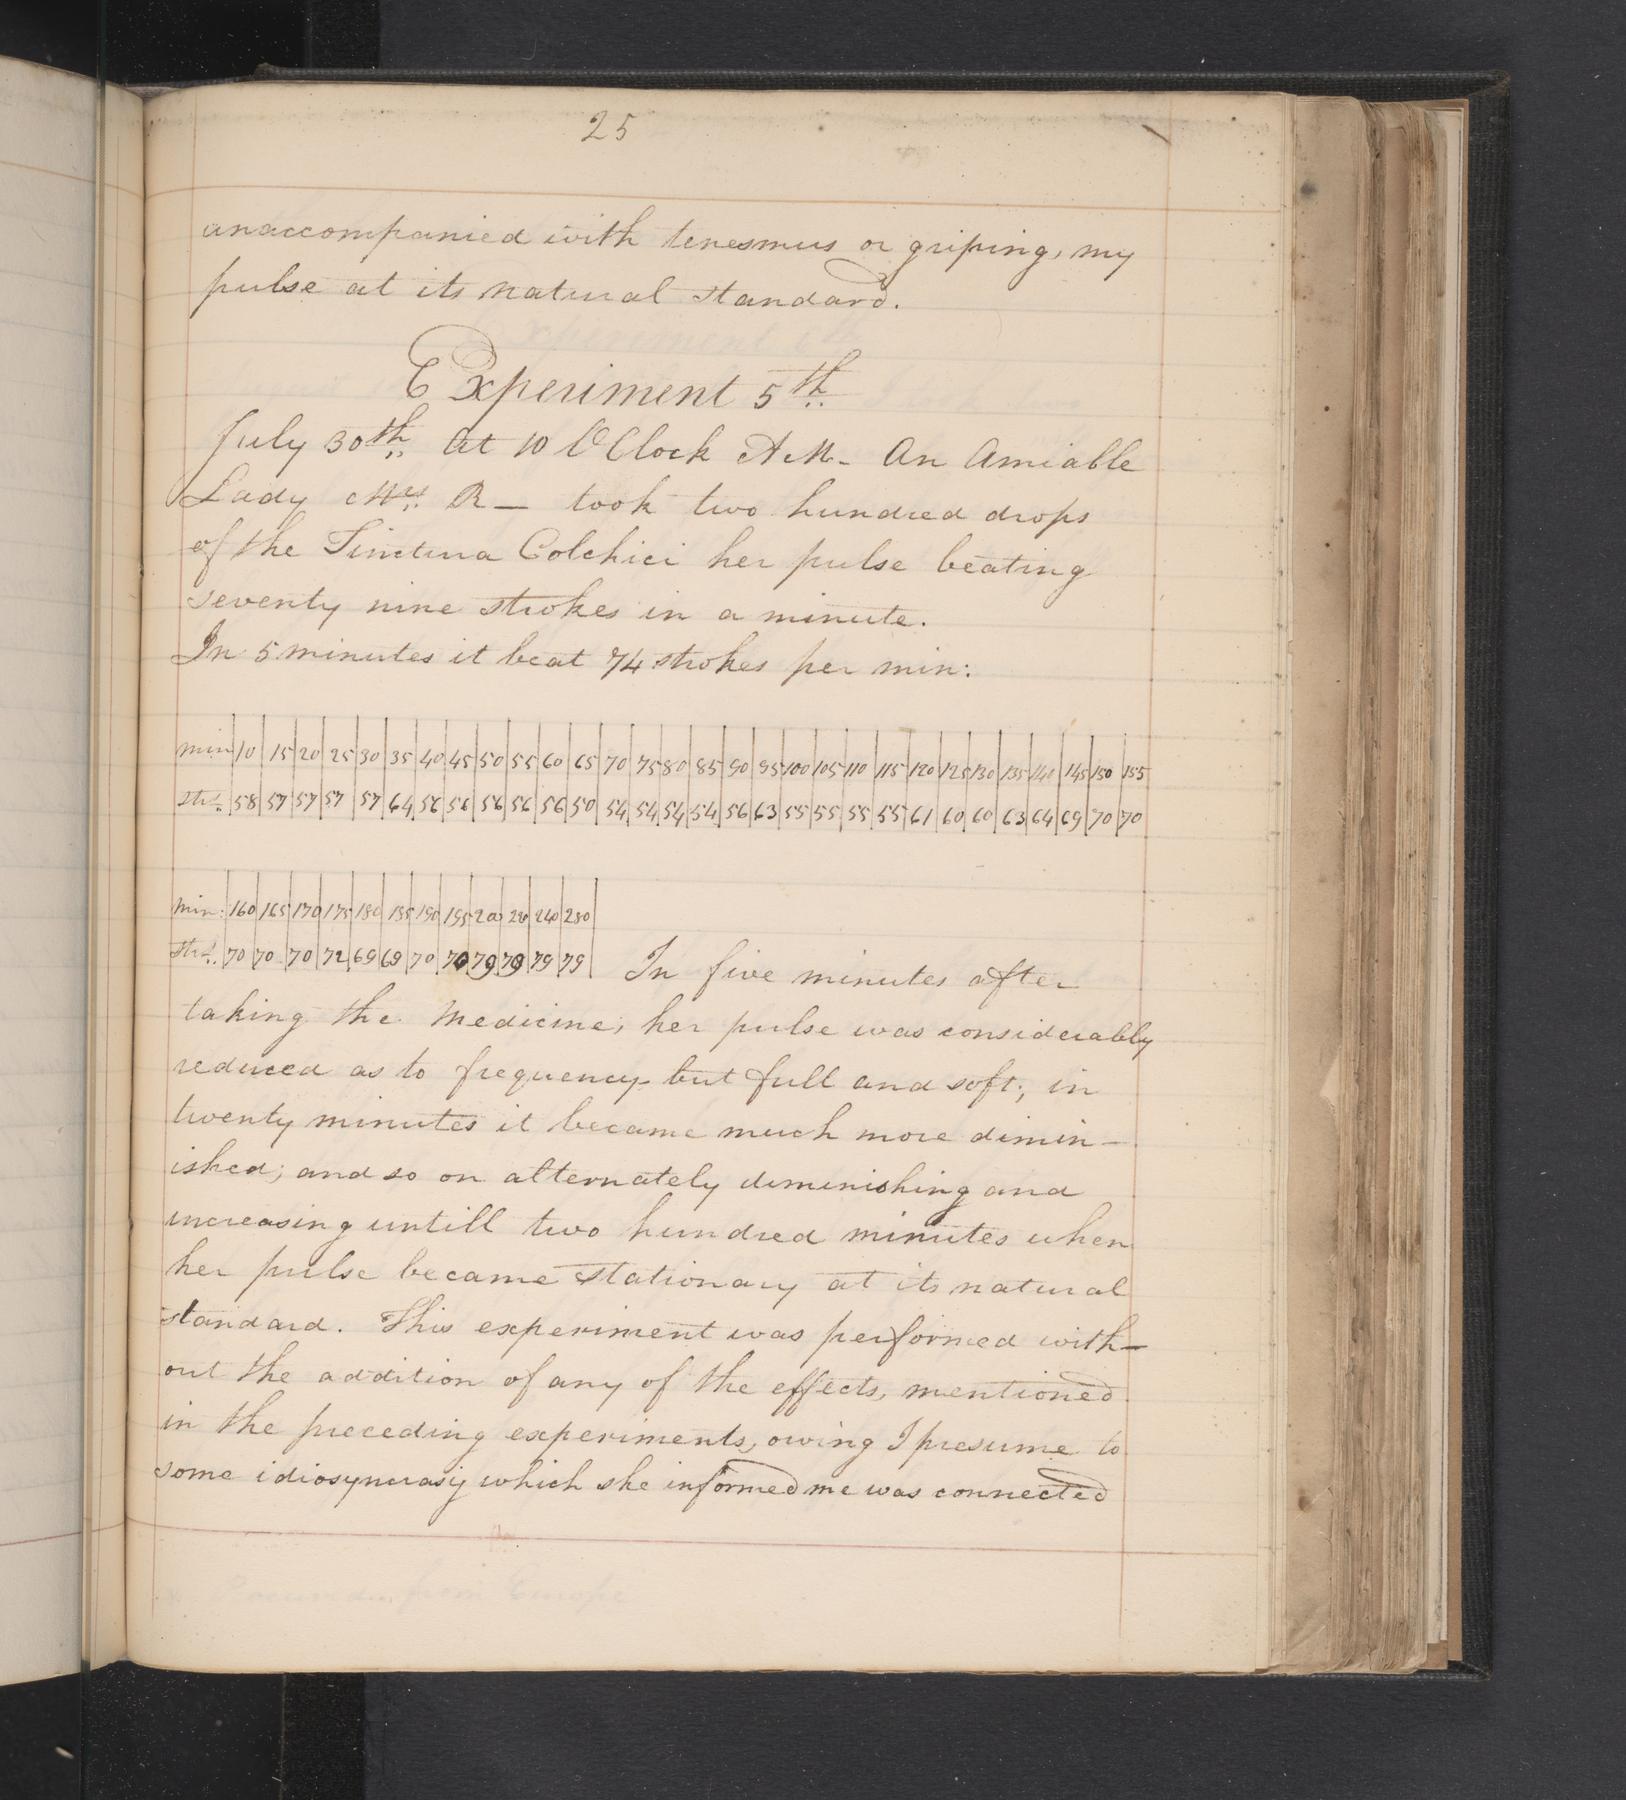 25
unaccompanied with tenesmus or griping, my
pulse at its natural standard.
Experiment 5th
July 30th At 10 O'Clock A.M- An Amiable
Lady Mrs R— took two hundred drops
of the Tinctura Colchici her pulse beating
seventy nine strokes in a minute.
In 5 minutes it beat 74 strokes per min:
min 10 15 20 25 30 35 40 45 50 55 60 65 70 75 80 85 90 95 100 105 110 115 120 125 130 135 140 145 150 155
strs 58 57 57 57 57 64 56 56 56 56 56 50 54 54 54 54 56 63 55 55 55 55 61 60 60 63 64 69 70 70
min: 160 165 170 175 180 185 190 195 200 220 240 280
strs 70 70 70 72 69 69 70 70 79 79 79 79 In five minutes after
taking the Medicine, her pulse was considerably
reduced as to frequency but full and soft; in
twenty minutes it became much more dimin-
ished; and so on alternately diminishing and
increasing untill two hundred minutes when
her pulse became stationary at its natural
standard. This experiment was performed with-
out the addition of any of the effects, mentioned
in the preceding experiments, owing I presume to
some idiosyncrasy which she informed me was connected